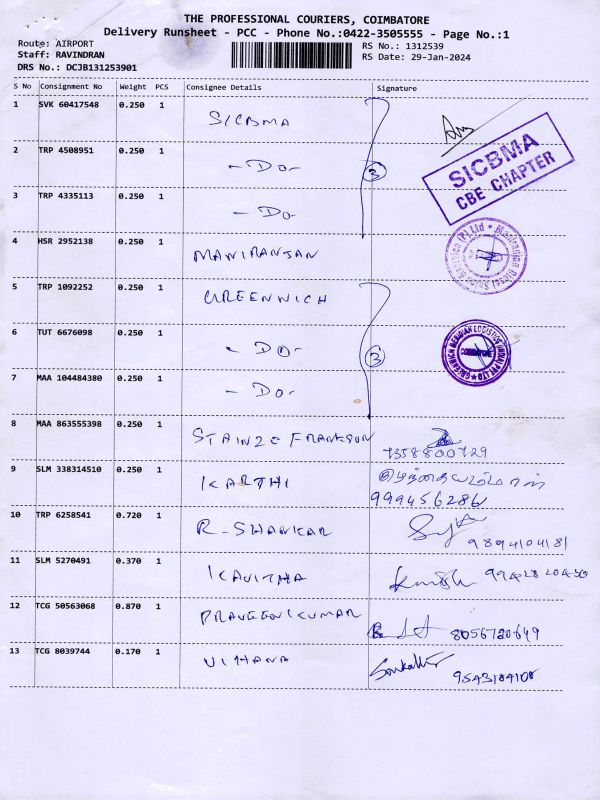 THE PROFESSIONAL COURIERS, COIMBATORE
Delivery Runsheet - PCC - Phone No.:0422-3505555 - Page No.:1
Route: AIRPORT
RS No.: 1312539
Staff: RAVINDRAN
RS Date: 29-Jan-2024
DRS No.: DCJB131253901
S No Consignment No Weight PCS Consignee Details Signature
1 SVK 60417548 0.250 1 SICBMA
2 TRP 4508951 0.250 1 - Do -
3
SICBMA
CBE CHAPTER
3 TRP 4335113 0.250 1 - Do -
4 HSR 2952138 0.250 1 MANIRANJAN
5 TRP 1092252 0.250 1 GREENWICH
6 TUT 6676098 0.250 1 - DO -
3
GREENWICH MERIDIAN LOGISTICS (INDIA) PVT LTD
7 MAA 104484380 0.250 1 - DO -
8 MAA 863555398 0.250 1 STAINZE FRANKSON
7358800729
9 SLM 338314510 0.250 1 KARTHI
999456286
10 TRP 6258541 0.720 1 R. SHANKAR
9894104181
11 SLM 5270491 0.370 1 KAVITHA
12 TCG 50563068 0.870 1 PRAVEENKUMAR
8056720649
13 TCG 8039744 0.170 1 VIHANA
9543184108